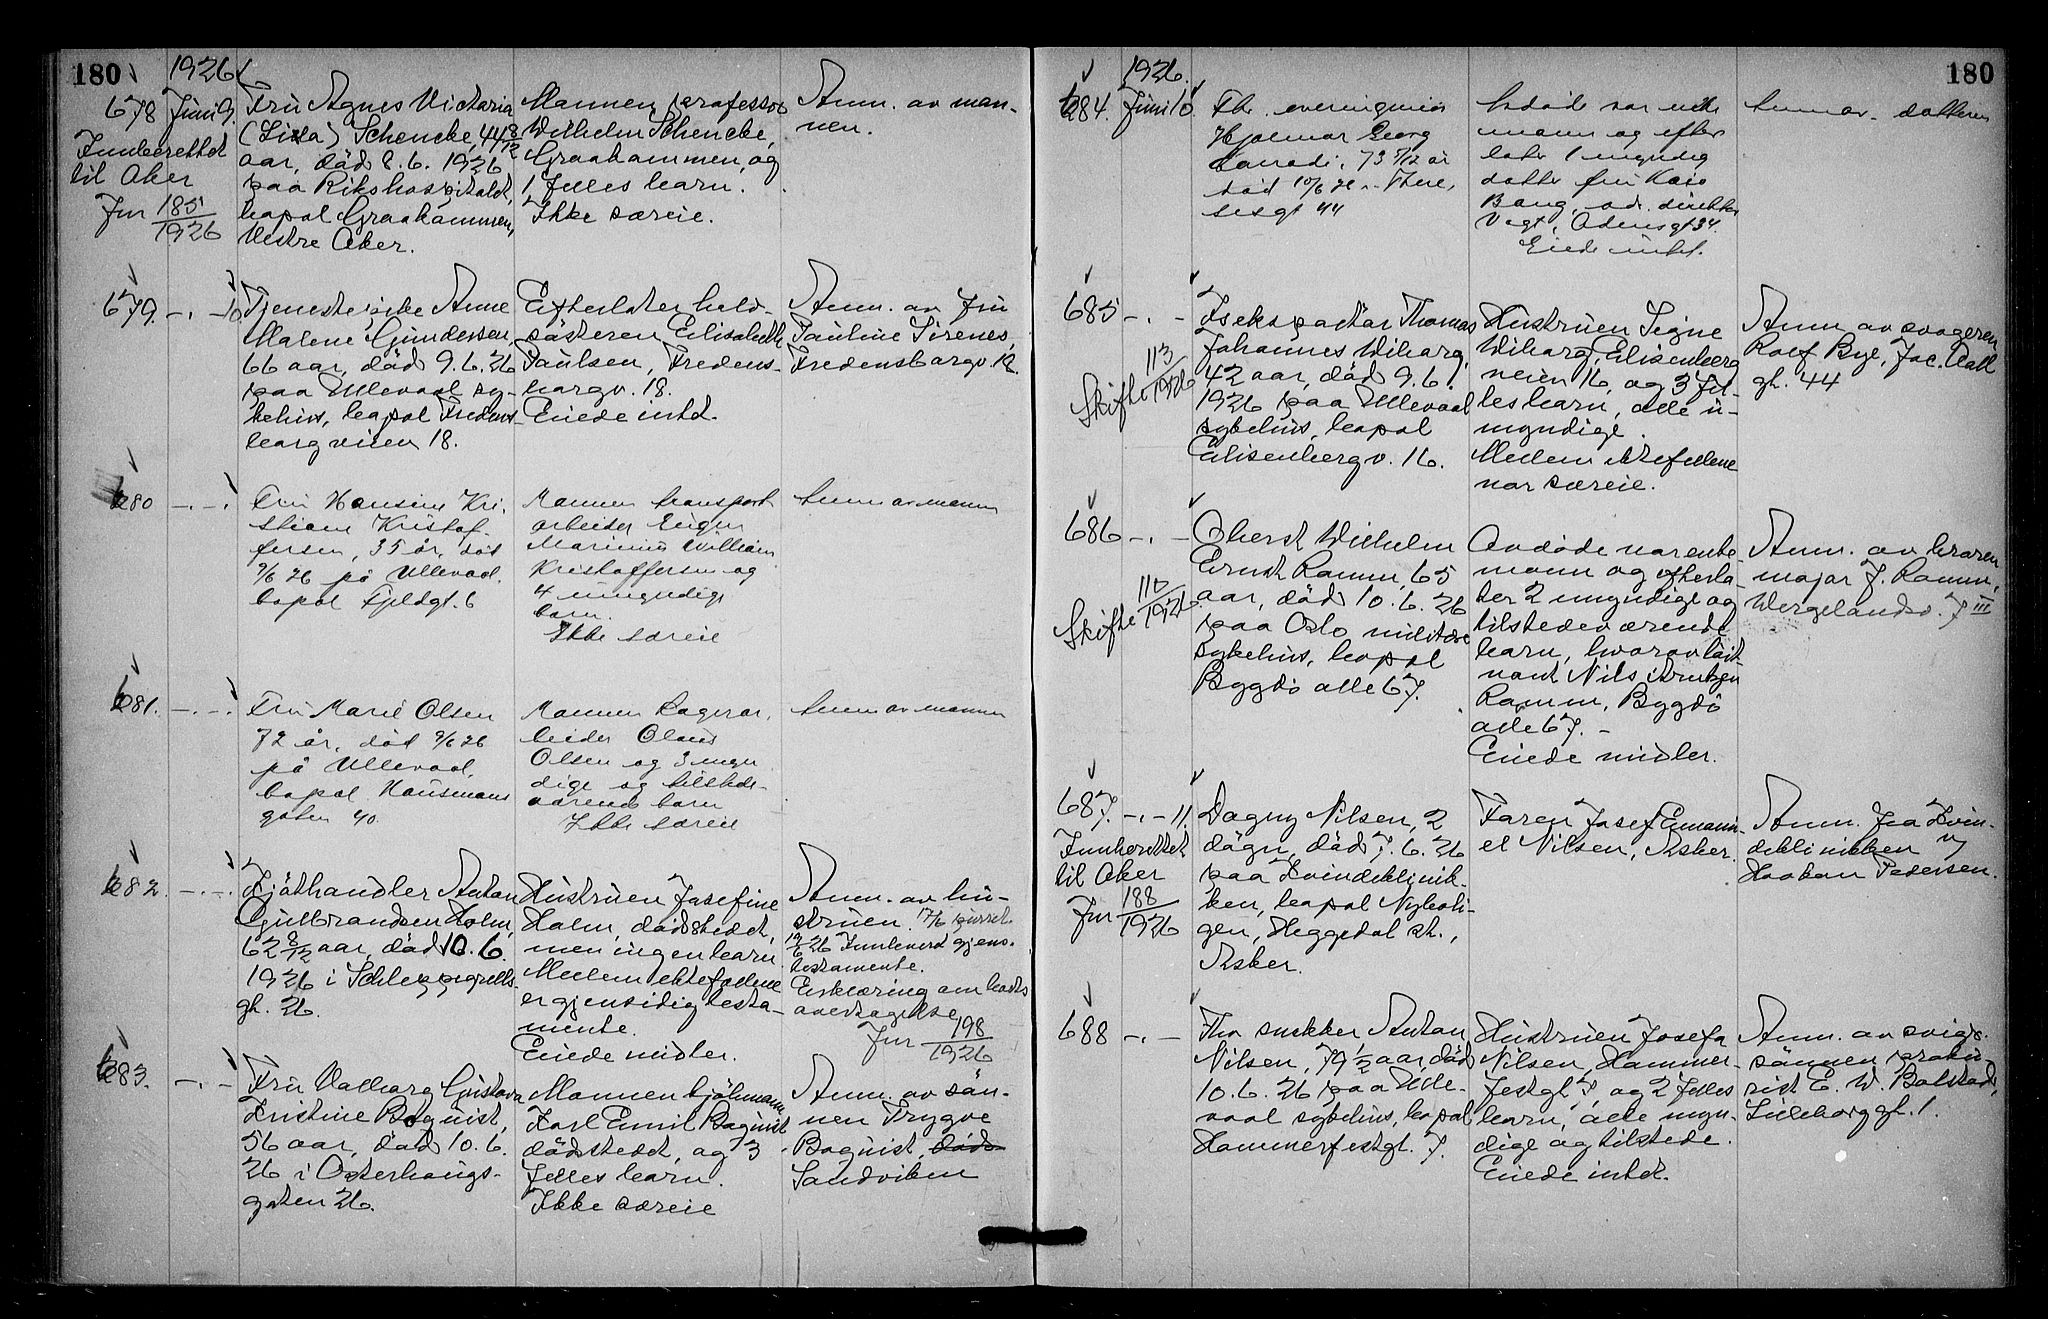 180
1926
678 Juni 9.
Innberettet
til Aker
Jnr 185/1926
Fru Agnes Victoria
Schencke, 44 8/12
aar, död 8.6.1926
paa Rikshospitalet,
bopæl Graakammen,
Vestre Aker.
Mannen professor
Wilhelm Schencke,
Graakammen, og
1 felles barn.
Ikke særeie.
Anm. av man-
nen.
679. -.- 10
Tjenestepike Anne
Malene Gundersen,
66 aar, död 9.6.26
paa Ullevaal sy-
kehus, bopæl Fredens-
borgveien 18.
Efterlater hel-
sösteren Elisabeth
Paulsen, Fredens-
borgv. 18.
Eiede intet.
Anm. av fru
Pauline Sirenes,
Fredensborgv. 18.
680 -.-.
Fru Hansine Kri-
stiane Kristof-
fersen, 35 år, död
9/6 26 på Ullevaal.
bopæl Fjeldgt. 6
Mannen transport
arbeider
Marinius William
Kristoffersen og
4 umyndige
barn.
Ikke særeie
Anm av mannen
681. -.-.
Fru Marie Olsen
72 år, död 9/6 26
på Ullevaal,
bopæl Hausmanns
gaten 40.
Mannen Lagerar-
beider Olaus
Olsen og 3 myn
dige og tilstede-
værende barn
Ikke særeie
Anm av mannen
682. -.-.
Kjöthandler Anton
Gulbrandsen Holm,
62 8/12 aar, död 10.6.
1926 i Schleppegrells
gt. 26.
Hustruen Josefine
Holm, dödstedet,
men ingen barn
Mellem ektefællene
er gjensidig testa-
mente.
Eiede midler.
Anm. av hu-
struen. 17/6
Innlevert gjens.
testamente.
Erklæring om boets
overtagelse
Jnr 198/1926
683. -.-
Fru Valborg Gustava
Kristine Boquist,
56 aar, död 10.6.
26 i Osterhaugs-
gaten 26.
Mannen sjömann
Karl Emil Boquist
dödstedet, og 3
felles barn.
Ikke særeie
Anm. av sön-
nen Trygve
Boquist, död
Sandviken
180
1926.
684. Juni 10.
Hjalmar Georg
73 7/12 år
död 10/6 26 i There-
sesgt 44
Avdöde var enke
mann og efter
later 1 myndig
datter fru
Bang, adr. direktör
Vogt, Odinsgt 34.
Eiede intet.
Anm av datteren
685 -.-
Skifte 113/1926
Isekspeditör Thomas
Johannes Wiborg,
42 aar, död 9.6.
1926 paa Ullevaal
sykehus, bopæl
Elisenbergv. 16.
Hustruen Signe
Wiborg, Elisenberg
veien 16, og 3 fel-
les barn, alle u-
myndige.
Mellem ektefellene
var særeie.
Anm av svogeren
Rolf Bye, Jac. Aall
gt. 44
686 -.-
Skifte 110/1926
Oberst Wilhelm
Ernst Ramm, 65
aar, död 10.6.26
paa Oslo militære
sykehus, bopæl
Bygdö alle 67.
Avdöde var enke
mann og efterla-
ter 2 myndige og
tilstedeværende
barn, hvorav löit-
nant Nils
Ramm, Bygdö
alle 67. -
Eiede midler.
Anm. av broren,
major J. Ramm,
Wergelandsv. 7 III
687. -.- 11.
Innberettet
til Aker
Jnr 188/1926
Dagny Nilsen, 2
dögn, död 7.6.26
paa Kvindeklinik-
ken, bopæl Nyboli-
gen, Heggedal st.,
Asker.
Faren Josef Emanu-
el Nilsen, Asker.
Anm. fra Kvin-
deklinikken v/
Haakon Pedersen.
688 -.-
Fhv snekker Anton
Nilsen, 79 1/2 aar, död
10.6.26 paa Ulle-
vaal sykehus, bopæl
Hammerfestgt. 7.
Hustruen Josefa
Nilsen, Hammer-
festgt 7, og 2 felles
barn, alle myn-
dige og tilstede.
Eiede intet.
Anm. av sviger-
sönnen proku-
rist E. W. Bolstad,
Lilleborggt. 1.